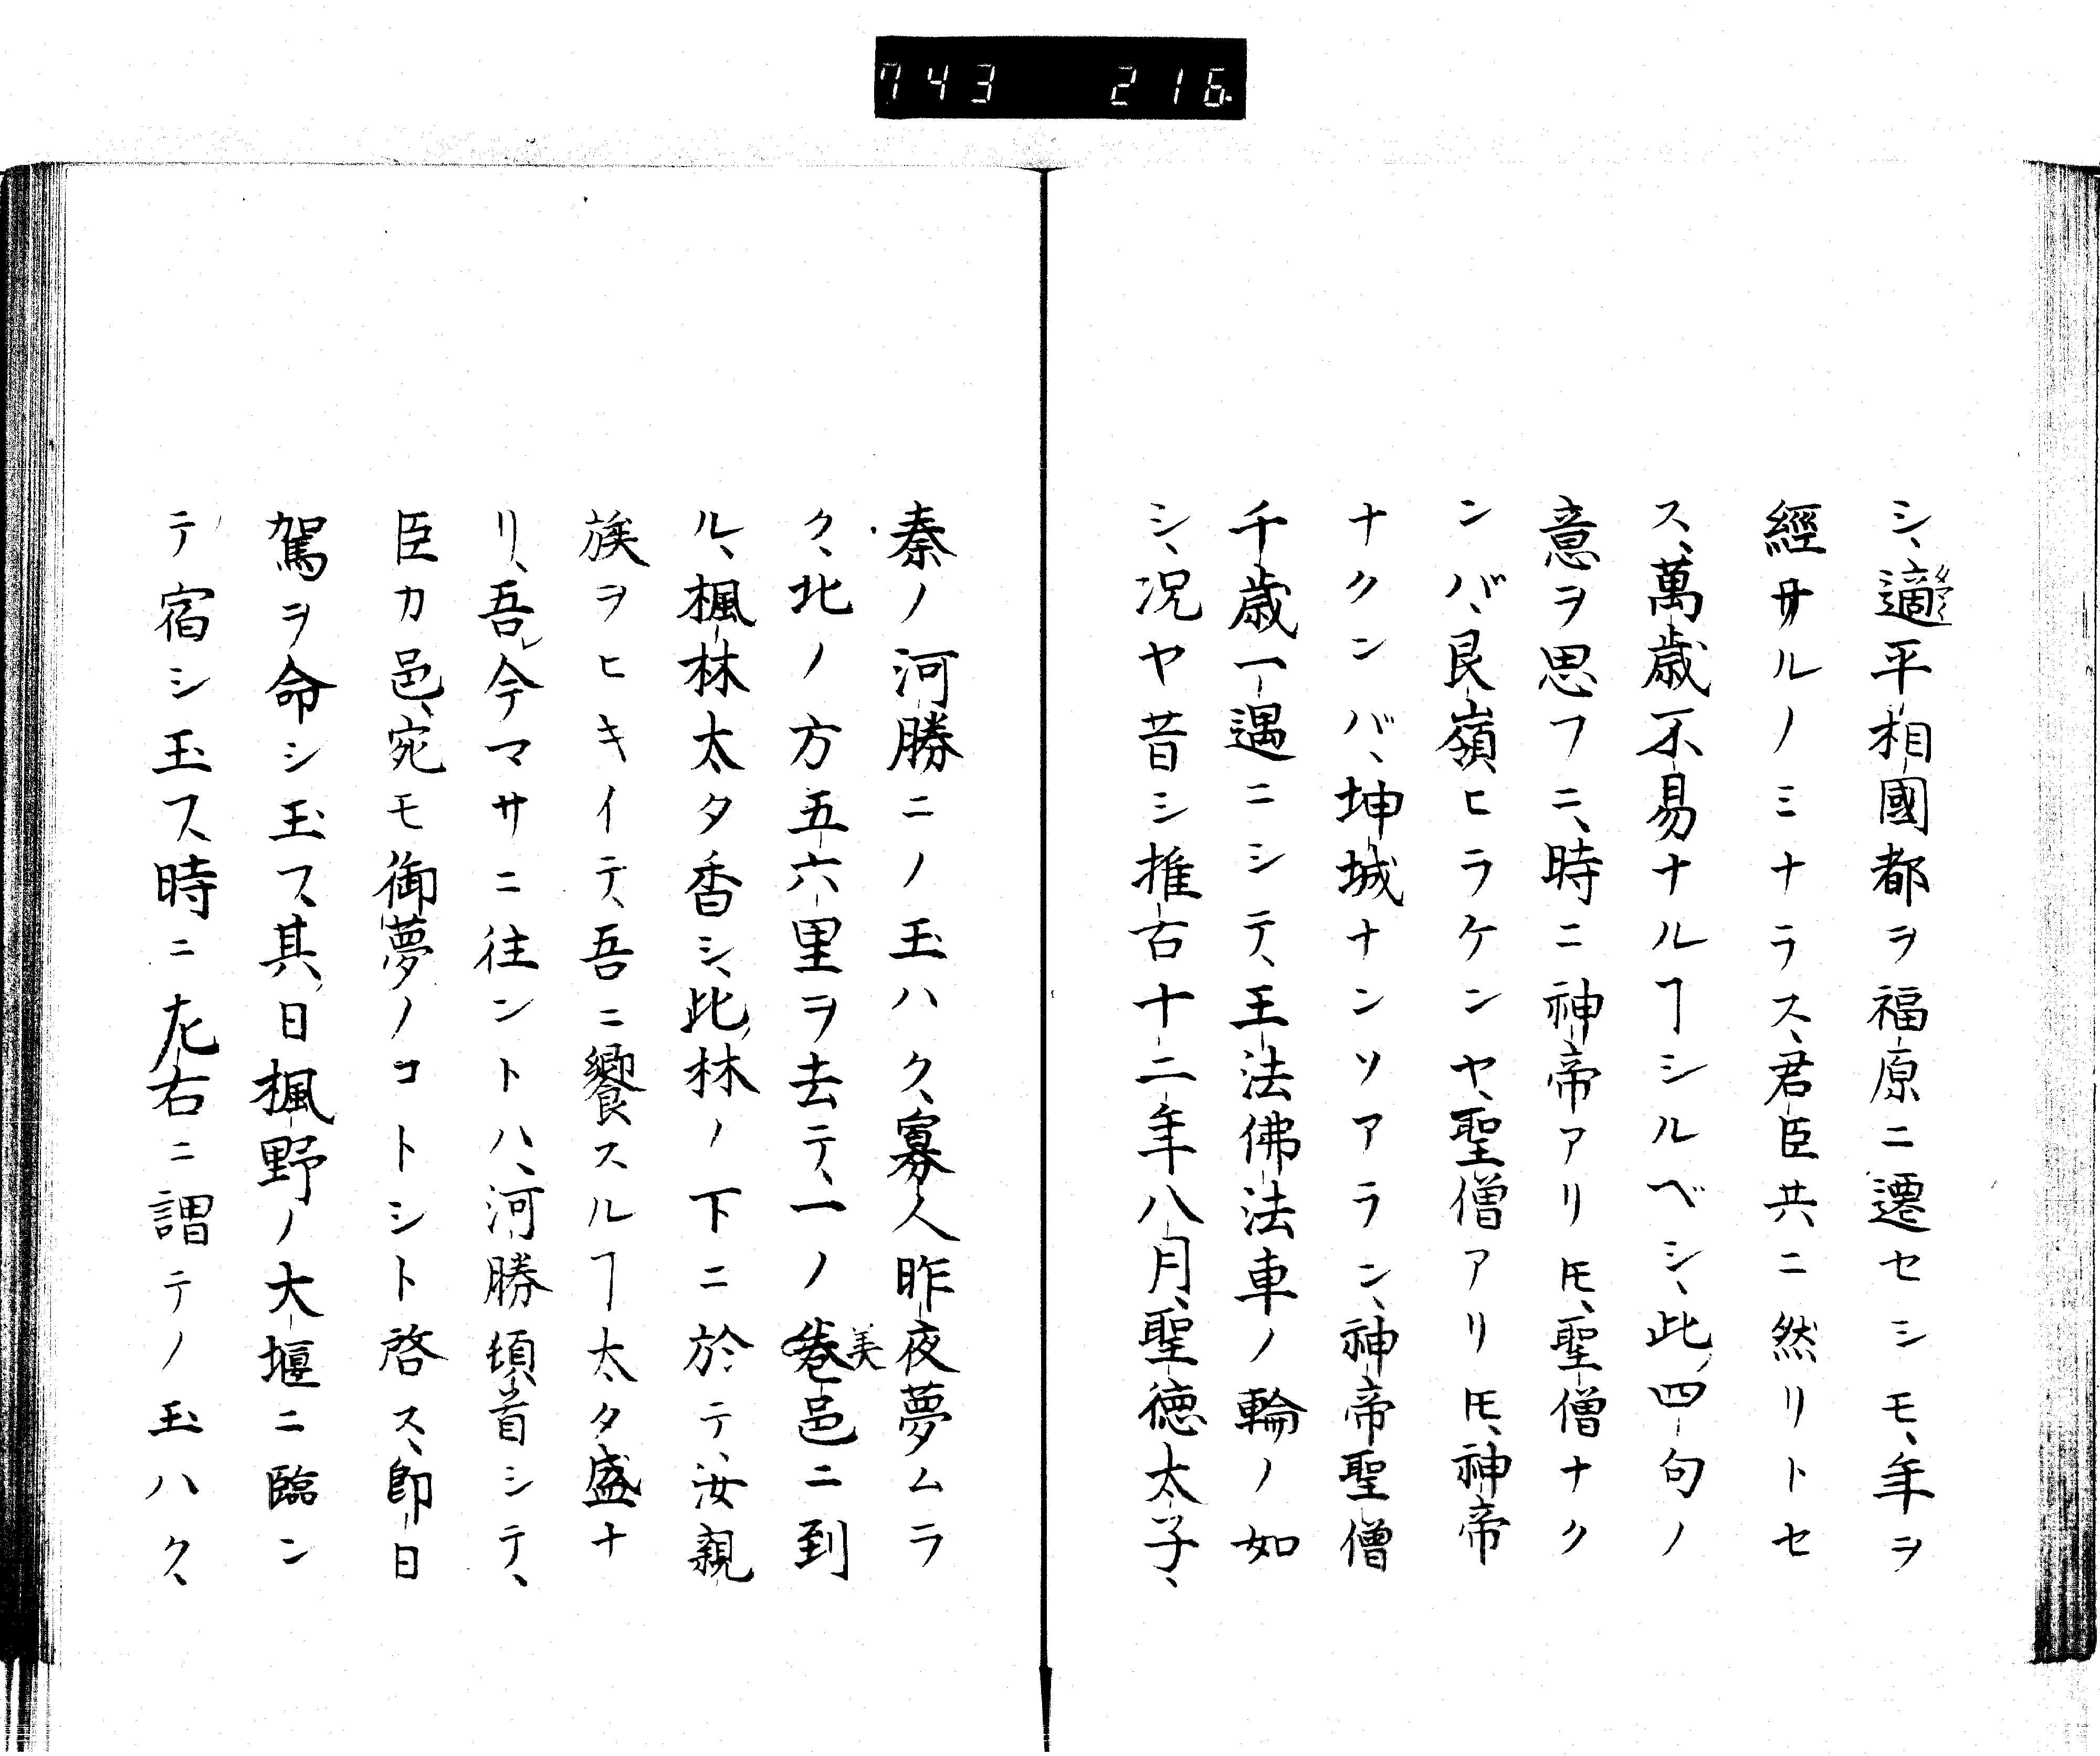 743 216
シ、適タマタマ平相國都ヲ福原ニ遷セシモ、年ヲ
經サルノミナラス、君臣共ニ然リトセ
ス、萬歳不易ナルヿシルベシ、此四句ノ
意ヲ思フニ、時ニ神帝アリトモ、聖僧ナク
ンバ、艮嶺ヒラケンヤ、聖僧アリトモ、神帝
ナクンバ、坤城ナンソアラン、神帝聖僧
千歳一遇ニシテ、王法佛法車ノ輪ノ如
シ、況ヤ昔シ推古十二年八月、聖徳太子、
秦ノ河勝ニノ玉ハク、寡人昨夜夢ムラ
ク、北ノ方五六里ヲ去テ、一ノ巻美邑ニ到
ル、楓林太タ香シ、此林ノ下ニ於テ、汝親
族ヲヒキイテ、吾ニ饗スルヿ太タ盛ナ
リ、吾今マサニ往ントハ、河勝頓首シテ、
臣カ邑、宛モ御夢ノコトシト啓ス、即日
駕ヲ命シ玉フ、其日楓野ノ大堰ニ臨ン
テ宿シ玉フ、時ニ左右ニ謂テノ玉ハク、